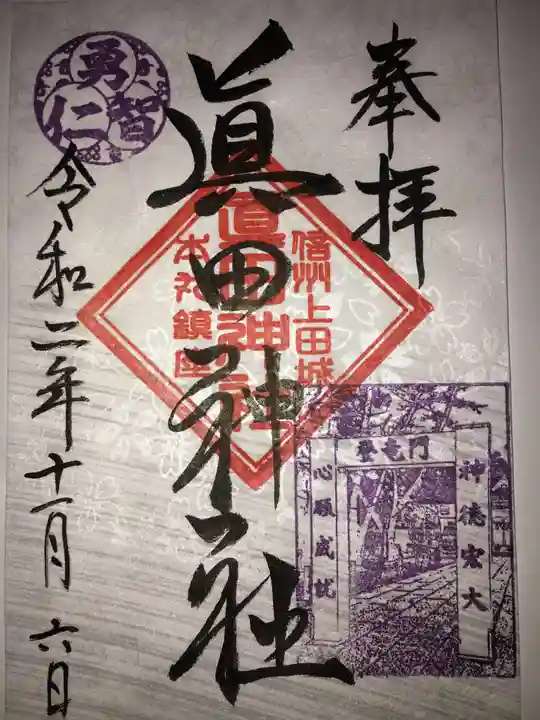 奉拝
眞田神社
信州上田城
眞田神社
本丸鎮座
勇
智
仁
神徳宏大
登竜門
心願成就
令和二年十一月六日